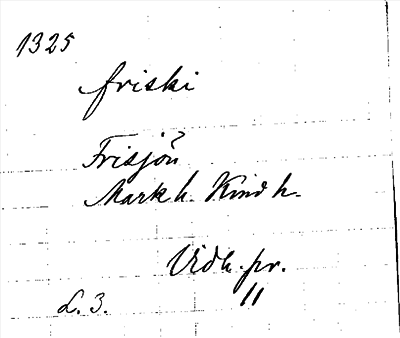 1325
friski
Frisjön
Mark h. Kind h.
Vidh. pr.
L. 3. 11